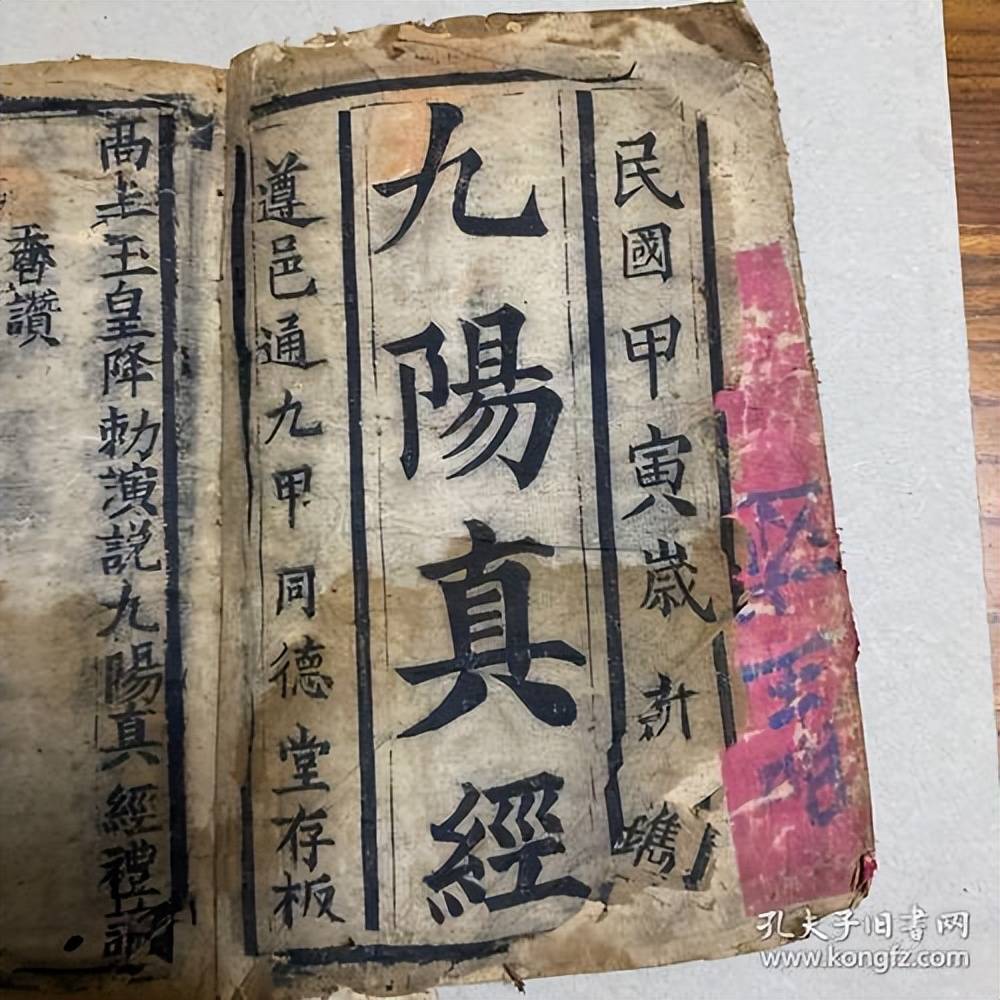 民國甲寅歲新鐫
九陽真經
遵邑通九甲同德堂存板
高上玉皇降勅演説九陽真經禮
香讚
孔夫子旧书网
www.kongfz.com